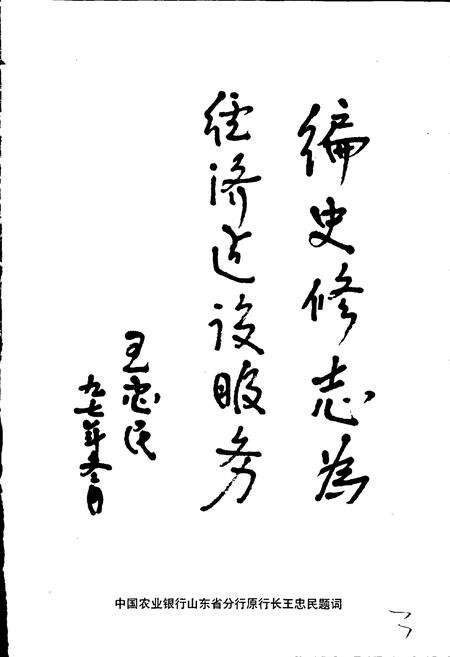 编史修志為
经济建设服务
王忠民
九七年冬月
中国农业银行山东省分行原行长王忠民题词